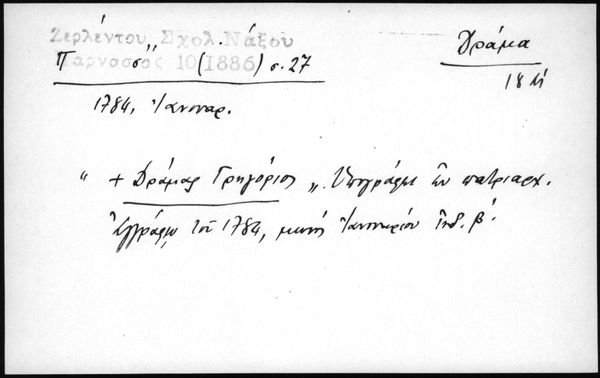 Ζερλέντου, Σχολ. Νάξου
Παρνασσός 10 (1886) σ. 27
Δράμα
18
1784, Ἰανουαρ.
" + Δράμας Γρηγόριος „ Ὑπογράφει ἐν πατριαρχ.
ἐγγράφῳ τοῦ 1784, μηνὸς Ἰανουαρίου Ἰνδ. β'.